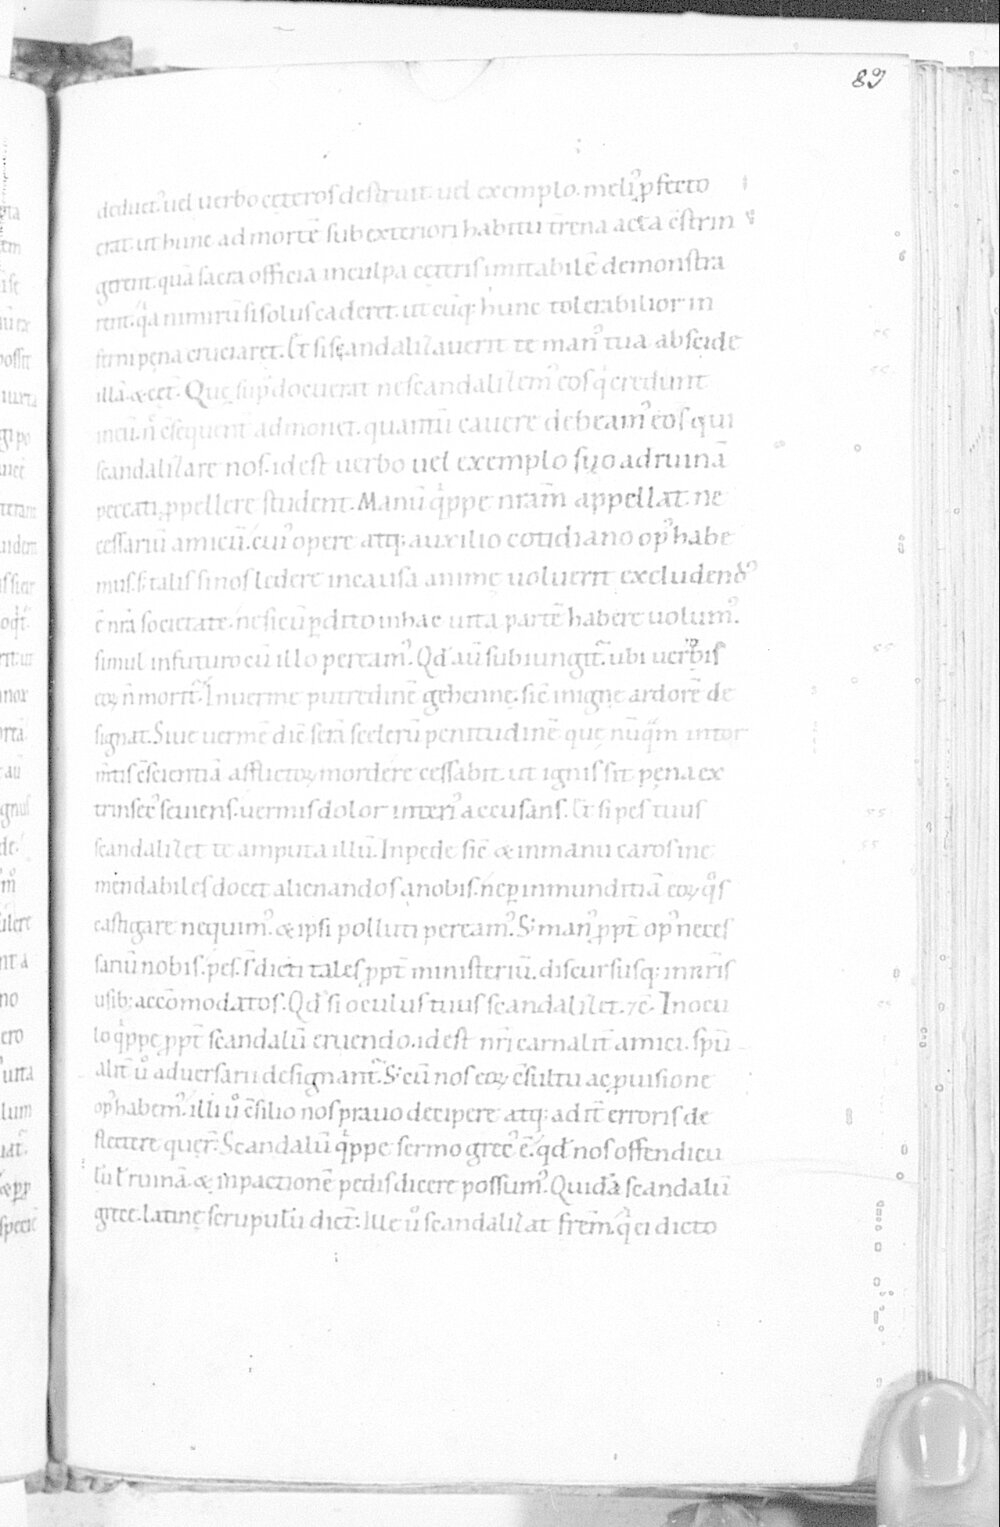 89
ducit. uel uerbo ceteros destruit. uel exemplo. meli᾽ pfecto
erat. ut hunc ad mortē sub exteriori habitu trena acta c̄strin
gerent. quā sacra officia in culpa ceteris imitabilē demonstra
rent. q̄a nimirū si solus caderet. utcūq; hunc tolerabilior in
ferni pęna cruciaret. Et si scandalizauerit te man᾽ tua abscide
illā. & cet̄. Quę sup̄ docuerat ne scandalizem᾽ eos q̇ credunt
in eū. n̄ c̄sequent̄ admonet. quantū cauere debeam᾽ eos qui
scandalizare nos. id est uerbo uel exemplo suo ad ruinā
peccati ppellere student. Manū q̇ppe nram̄ appellat ne
cessariū amicū. cui᾽ opere atq; auxilio cotidiano op᾽ habe
mus. s; talis si nos ledere in causa animę uoluerit excludend᾽
ē nra societate. ne si cū pdito in hac uita partē habere uolum᾽.
simul in futuro cū illo peream᾽. Qd̄ aū subiungit᷑. ubi uerbis
eoꝝ n̄ morit᷑. In uerme putredinē gehennę. sic in igne ardorē de
signat. Siue uermē dic̄ serā scelerū penitudinē quę nūqm̄ in tor
m̄tis c̄scientiā afflictoꝝ mordere cessabit. ut ignis sit pęna ex
trinsec᾽ seuiens. uermis dolor interi᾽ accusans. Et si pes tuus
scandalizet te amputa illū. In pede sic & in manu caros ine
mendabiles docet alienandos a nobis. ne p inmunditiā eoꝝ q̊s
castigare nequim᾽. & ipsi polluti peream᾽. S; man᾽ ppt̄ op᾽ neces
sariū nobis. pes. s; dicti tales ppt̄ ministeriū. discursusq; in nr̄is
usib; accōmodatos. Qd̄ si oculus tuus scandalizet. ⁊c̄. In ocu
lo q̇ppe ppt̄ scandalū eruendo. id est nr̄i carnalit̄ amici. spū
alit̄ ů aduersarii designant᷑. S; cū nos eoꝝ c̄sultu ac puisione
op᾽ habem᾽. illi ů c̄silio nos prauo decipere atq; ad it̄ erroris de
flectere quer̄. Scandalū q̇ppe sermo grec᾽ ē. qd̄ nos offendicu
lū ł ruinā. & inpactionē pedis dicere possum᾽. Quidā scandalū
grece. latinę scrupulū dict̄. Ille ů scandalizat frem̄. q̇ ei dicto